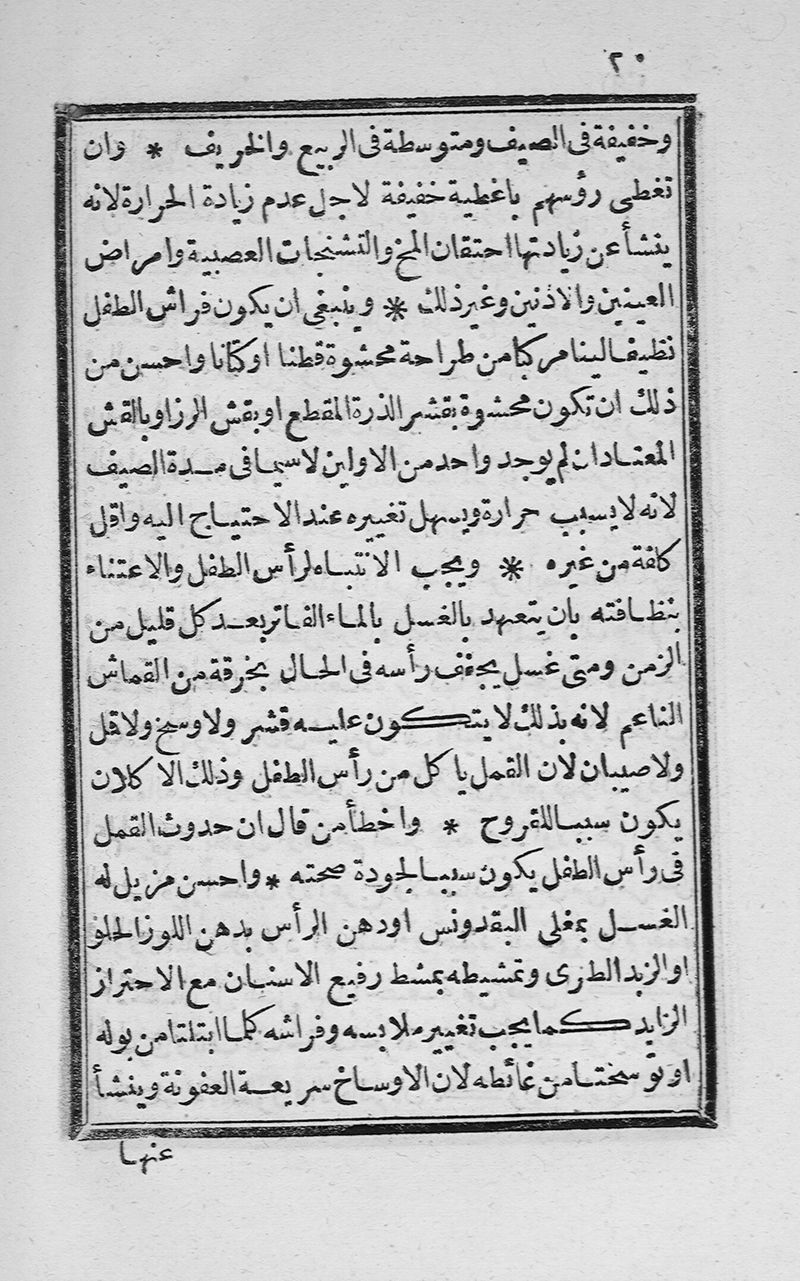 ٢٠
وخفيفة فى الصيف ومتوسطة فى الربيع والخريف * وان
تغطى رؤسهم باغطية خفيفة لاجل عدم زيادة الحرارة لانه
ينشأ عن زيادتها احتقان المخ والتشنجات العصبية وامراض
العينين والاذنين وغير ذلك * وينبغى ان يكون فراش الطفل
نظيفا لينا مركبا من طراحة محشوة قطنا او كتانا واحسن من
ذلك ان تكون محشوة بقشر الذرة المقطع او بقش الرز او بالقش
المعتاد ان لم يوجد واحد من الاولين لاسيما فى مدة الصيف
لانه لا يسبب حرارة ويسهل تغييره عند الاحتياج اليه واقل
كلفة من غيره * ويجب الانتباه لرأس الطفل والاعتناء
بنظافته بان يتعهد بالغسل بالماء الفاتر بعد كل قليل من
الزمن ومتى غسل يجفف رأسه فى الحال بخرقة من القماش
الناعم لانه بذلك لا يتكون عليه قشر ولا وسخ ولا قل
ولا صيبان لان القمل ياكل من رأس الطفل وذلك الاكلان
يكون سببا للقروح * واخطأ من قال ان حدوث القمل
فى رأس الطفل يكون سببا لجودة صحته * واحسن مزيل له
الغسل بمغلى البقدونس او دهن الرأس بدهن اللوز الحلو
او الزبد الطرى وتمشيطه بمشط رفيع الاسنان مع الاحتراز
الزايد كما يجب تغيير ملابسه وفراشه كلما ابتلتا من بوله
او توسختا من غائطه لان الاوساخ سريعة العفونة وينشأ
عنها